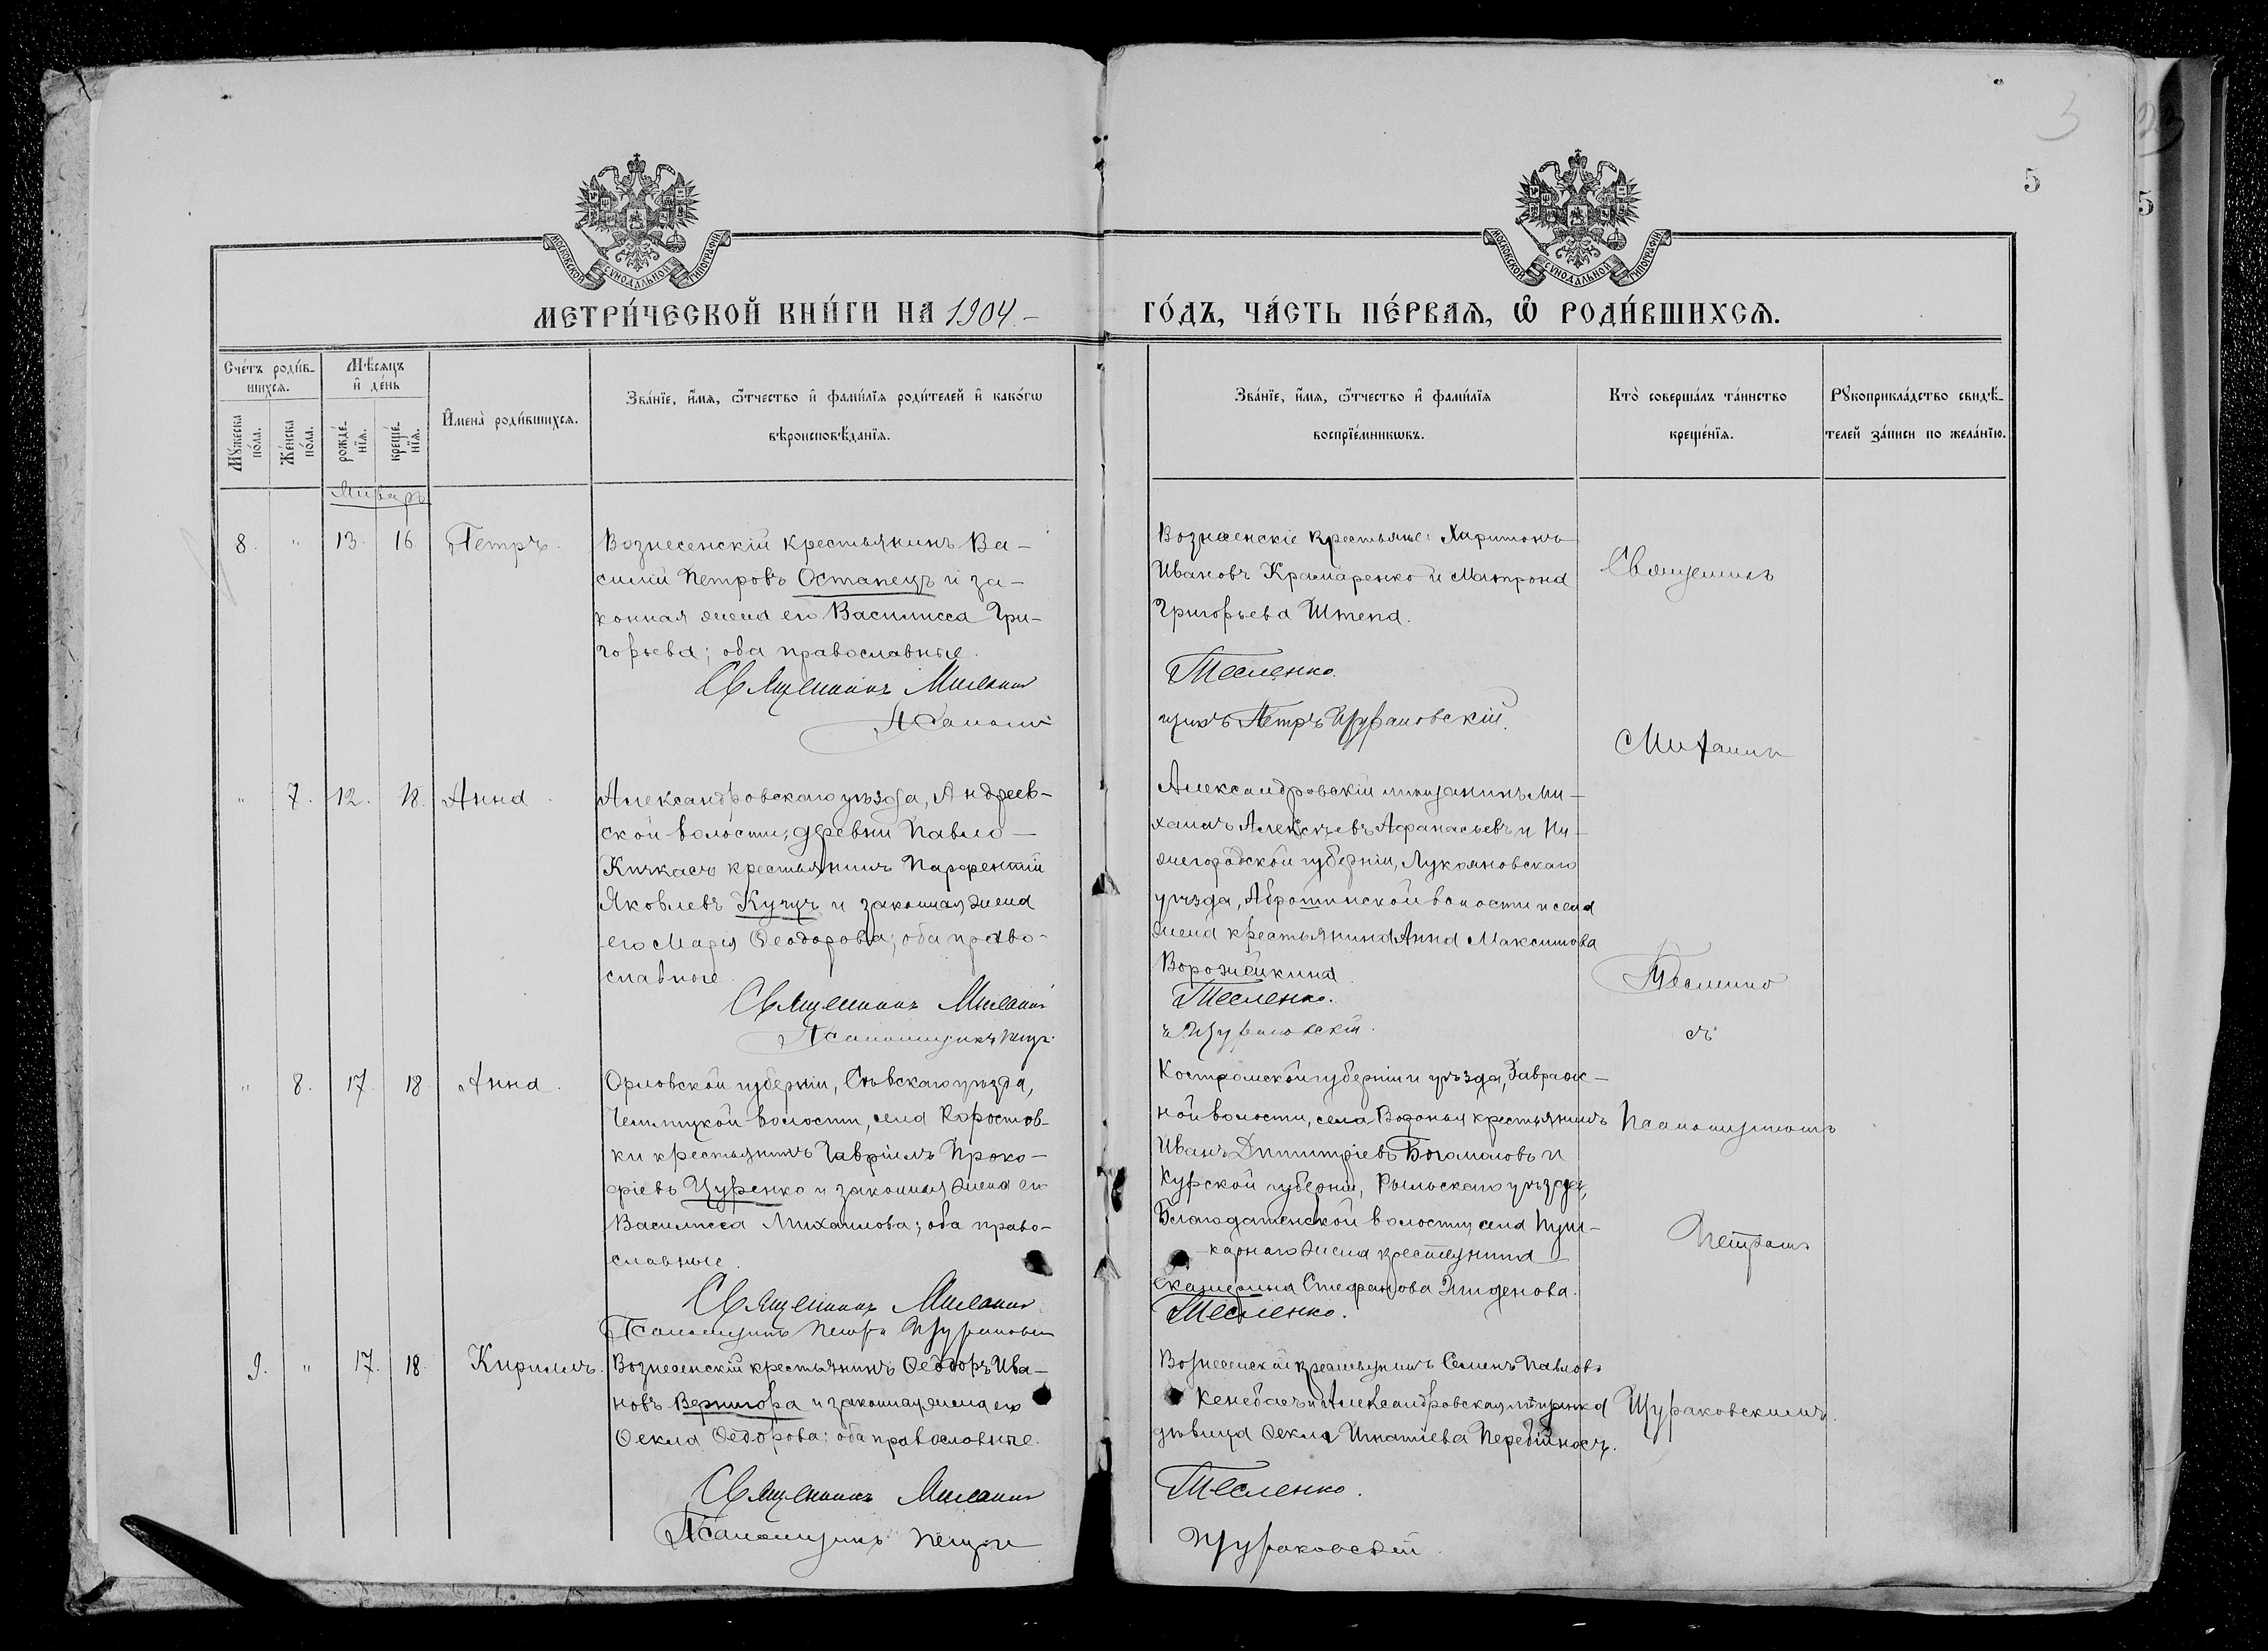 5
5
МОСКОВСКОЙ СѴНОДАЛЬНОЙ ТИПОГРАФІИ
МОСКОВСКОЙ СѴНОДАЛЬНОЙ ТИПОГРАФІИ
МЕТРИ́ЧЕСКОЙ КНИ́ГИ НА 1904.-
ГО́ДЪ, ЧА́СТЬ ПЕ́РВАѦ, Ѡ҆ РОДИ́ВШИХСѦ.
Сче́тъ роди́в-
шихсѧ.
Мѣ́сѧцъ
и҆ де́нь
Мꙋ́жеска
по́ла.
Же́нска
по́ла.
рожде́-
нїѧ.
креще́-
нїѧ.
И҆мена̀ роди́вшихсѧ.
Зва́нїе, и҆́мѧ, ѻ҆́тчество и҆ фами́лїѧ роди́телей и҆ како́гѡ
вѣроисповѣ́данїѧ.
Зва́нїе, и҆́мѧ, ѻ҆́тчество и҆ фами́лїѧ
воспрїе́мникѡвъ.
Кто̀ соверша́лъ та́инство
креще́нїѧ.
Рꙋкоприкла́дство свидѣ́-
телей за́писи по жела́нїю.
Январь
8. " 13. 16. Петръ.
Вознесенскій крестьянинъ Ва-
силій Петровъ Остапецъ и за-
конная жена его Василисса Гри-
горьева; оба православные.
Священникъ Михаилъ
Псаломщ
Вознесенскіе крестьяне: Харитонъ
Ивановъ Крамаренко и Матрона
Григорьева Штепа.
Тесленко.
щикъ Петръ Щураковскій.
Священникъ
Михаилъ
" 7. 12. 18. Анна.
Александровскаго уѣзда, Андреев-
ской волости, деревни Павло-
Кичкасъ крестьянинъ Парфентій
Яковлевъ Куцъ и законная жена
его Марія Ѳеодорова; оба право-
славные.
Священникъ Михаилъ
Псаломщикъ Петръ
Александровскій мѣщанинъ Ми-
хаилъ Алексѣевъ Афанасьевъ и Ни-
жегородской губерніи, Лукояновскаго
уѣзда, волости и села
жена крестьянина Анна Максимова
Ворожейкина
Тесленко.
Щураковскій.
Тесленко
" 8. 17. 18. Анна.
Орловской губерніи, Сѣвскаго уѣзда,
волости, села Коростов-
ки крестьянинъ Гавріилъ Проко-
фіевъ Цуренко и законная жена его
Василисса Михаилова; оба право-
славные.
Священникъ Михаилъ
Псаломщикъ Петръ Щураковскій
Костромской губерніи и уѣзда, Завраж-
ной волости, села крестьянинъ
Иванъ Димитріевъ Богомоловъ и
Курской губерніи, Рыльскаго уѣзда,
Благодатенской волости, села Пуш-
карнаго жена крестьянина
Екатерина Стефанова
Тесленко.
Псаломщикомъ
Петромъ
9. " 17. 18. Кириллъ.
Вознесенскій крестьянинъ Ѳеодоръ Ива-
новъ Вернигора и законная жена его
Ѳекла Ѳедорова; оба православные.
Священникъ Михаилъ
Псаломщикъ Петръ
Вознесенскій крестьянинъ Семенъ Павловъ
и Александровская мѣщанка
дѣвица Ѳекла Игнатіева Перебійносъ.
Тесленко.
Щураковскій
Щураковскимъ.